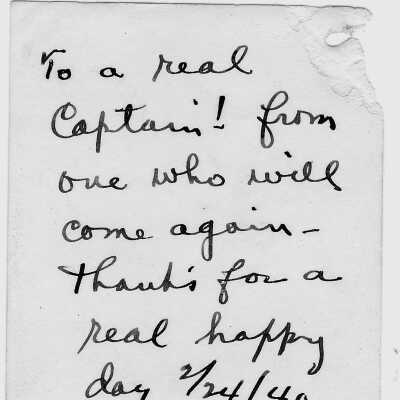 To a real
Captain! from
one who will
come again -
thank's for a
real happy
day 2/24/40